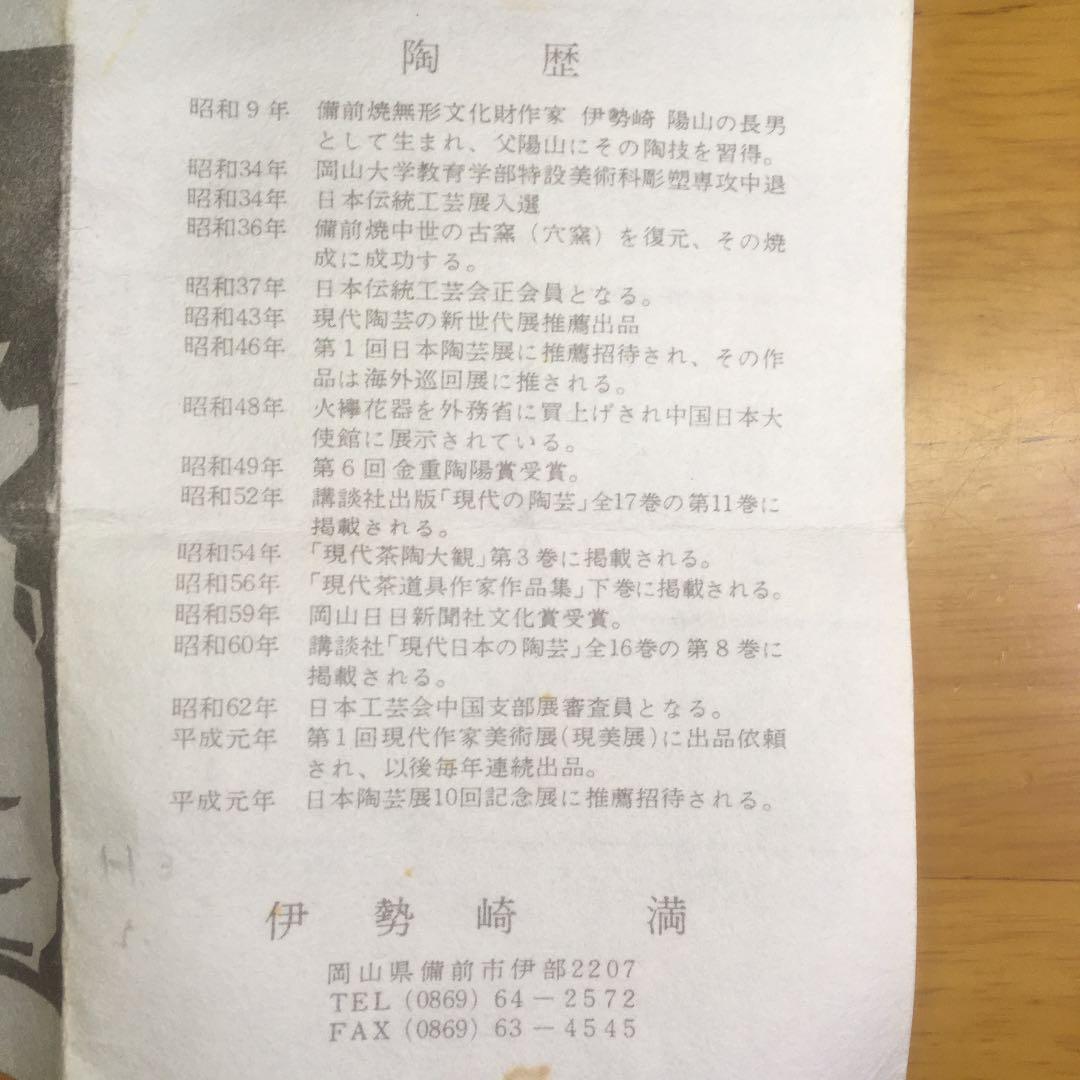 陶歴
昭和9年 備前焼無形文化財作家 伊勢崎 陽山の長男
として生まれ、父陽山にその陶技を習得。
昭和34年 岡山大学教育学部特設美術科彫塑専攻中退
昭和34年 日本伝統工芸展入選
昭和36年 備前焼中世の古窯(穴窯)を復元、その焼
成に成功する。
昭和37年 日本伝統工芸会正会員となる。
昭和43年 現代陶芸の新世代展推薦出品
昭和46年 第1回日本陶芸展に推薦招待され、その作
品は海外巡回展に推される。
昭和48年 火襷花器を外務省に買上げされ中国日本大
使館に展示されている。
昭和49年 第6回金重陶陽賞受賞。
昭和52年 講談社出版「現代の陶芸」全17巻の第11巻に
掲載される。
昭和54年 「現代茶陶大観」第3巻に掲載される。
昭和56年 「現代茶道具作家作品集」下巻に掲載される。
昭和59年 岡山日日新聞社文化賞受賞。
昭和60年 講談社「現代日本の陶芸」全16巻の第8巻に
掲載される。
昭和62年 日本工芸会中国支部展審査員となる。
平成元年 第1回現代作家美術展(現美展)に出品依頼
され、以後毎年連続出品。
平成元年 日本陶芸展10回記念展に推薦招待される。
伊勢崎 満
岡山県備前市伊部2207
TEL (0869) 64-2572
FAX (0869) 63-4545